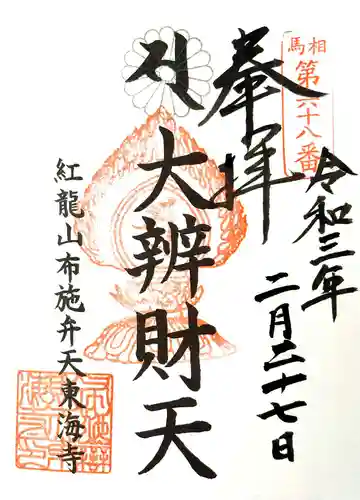 相馬
第六十八番
令和三年
二月二十七日
奉拝
大辨財天
紅龍山布施弁天東海寺